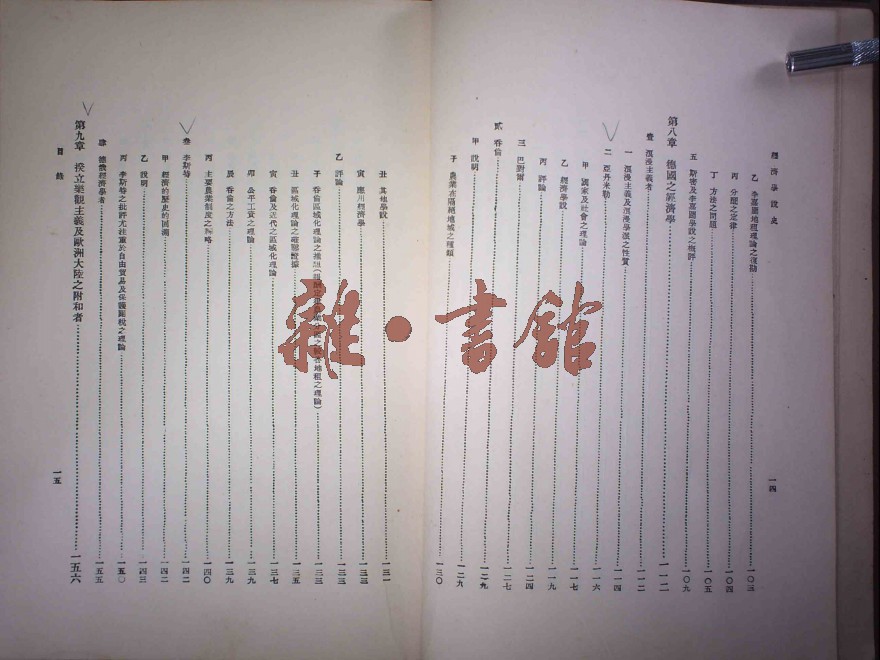 經濟學說史
乙 李嘉圖地租理論之復勘 一〇三
丙 分配之定律 一〇四
丁 方法之問題 一〇五
五 斯密及李嘉圖學說之概評 一〇九
第八章 德國之經濟學 一一二
壹 浪漫主義者 一一二
一 浪漫主義及浪漫學派之性質 一一四
二 亞丹米勒 一一六
甲 國家及社會之理論 一一七
乙 經濟學說 一一九
丙 評論 一二四
三 巴對爾 一二七
貳 吞倫 一二九
甲 說明 一二九
子 農業在隔絕地域之種類 一三〇
一四
丑 其他學說 一三一
寅 應用經濟學 一三三
乙 評論 一三三
子 吞倫區域化理論之推廣 地租之理論) 一三三
丑 區域化理論之確鑿證據 一三五
寅 吞倫及近代之區域化理論 一三七
卯 公平工資之理論 一三九
辰 吞倫之方法 一三九
丙 主要農業制度之概略 一四〇
叁 李斯特 一四二
甲 經濟的歷史的回溯 一四二
乙 說明 一四三
丙 李斯特之批評尤注重於自由貿易及保護關稅之理論 一五〇
肆 德俄經濟學者 一五五
第九章 揆立樂觀主義及歐洲大陸之附和者 一五六
目錄
一五
雜·書館